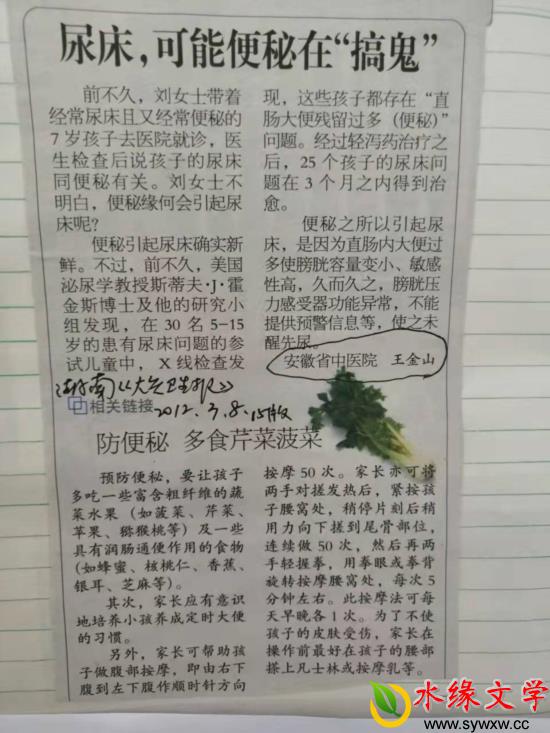 尿床，可能便秘在“搞鬼”
前不久，刘女士带着
经常尿床且又经常便秘的
7岁孩子去医院就诊，医
生检查后说孩子的尿床
同便秘有关。刘女士不
明白，便秘缘何会引起尿
床呢？
便秘引起尿床确实新
鲜。不过，前不久，美国
泌尿学教授斯蒂夫·J·霍
金斯博士及他的研究小
组发现，在30名5-15
岁的患有尿床问题的参
试儿童中，X线检查发
现，这些孩子都存在“直
肠大便残留过多（便秘）”
问题。经过轻泻药治疗之
后，25个孩子的尿床问
题在3个月之内得到治
愈。
便秘之所以引起尿
床，是因为直肠内大便过
多使膀胱容量变小、敏感
性高，久而久之，膀胱压
力感受器功能异常，不能
提供预警信息等，使之未
醒先尿。
安徽省中医院 王金山
湖南《大众卫生报》
相关链接
2012.3.8.15版
防便秘 多食芹菜菠菜
预防便秘，要让孩子
多吃一些富含粗纤维的蔬
菜水果（如菠菜、芹菜、
苹果、猕猴桃等）及一些
具有润肠通便作用的食物
(如蜂蜜、核桃仁、香蕉、
银耳、芝麻等)。
其次，家长应有意识
地培养小孩养成定时大便
的习惯。
另外，家长可帮助孩
子做腹部按摩，即由右下
腹到左下腹作顺时针方向
按摩50次。家长亦可将
两手对搓发热后，紧按孩
子腰窝处，稍停片刻后稍
用力向下搓到尾骨部位，
连续做50次，然后再两
手轻握拳，用拳眼或拳背
旋转按摩腰窝处，每次5
分钟左右。此按摩法可每
天早晚各1次。为了不使
孩子的皮肤受伤，家长在
操作前最好在孩子的腰部
搽上凡士林或按摩乳等。
水缘文学
www.sywxw.cc